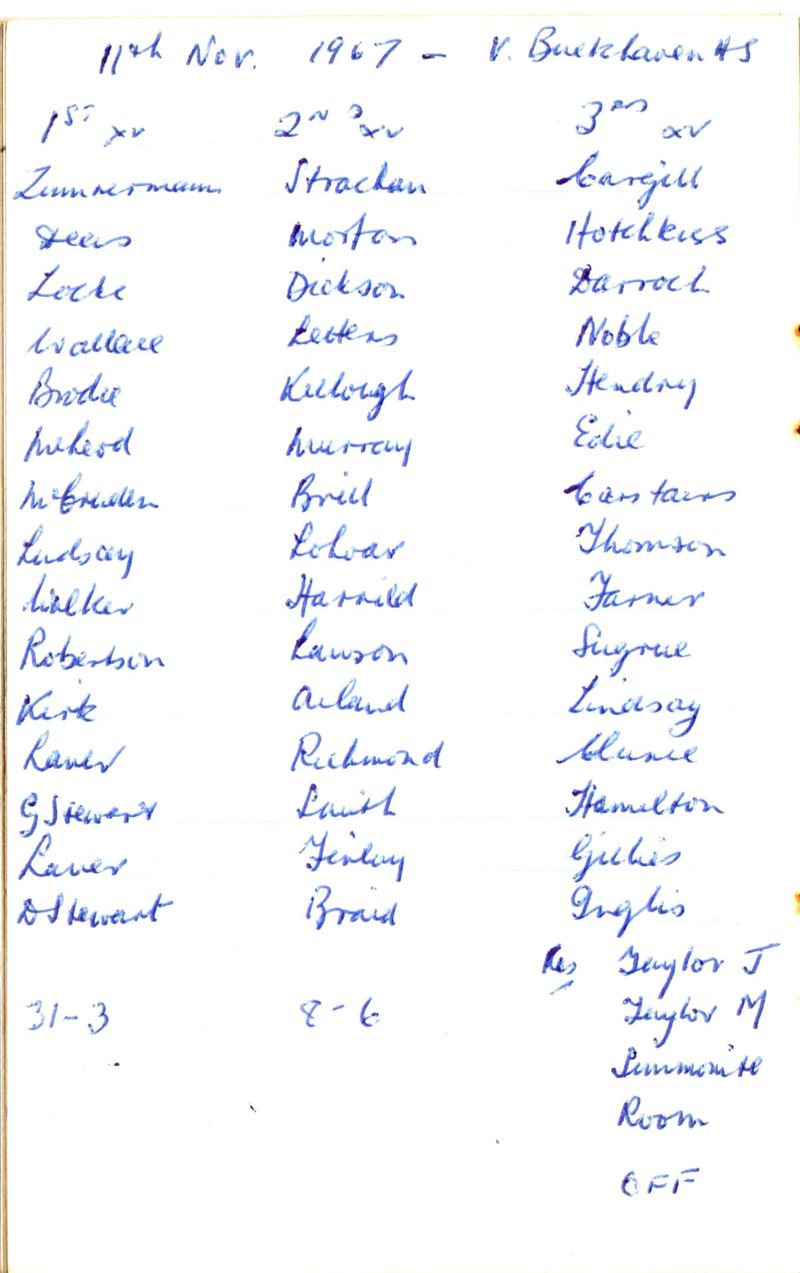 11th Nov. 1967 - v. Buckhaven HS
1ST XV 2ND XV 3RD XV
Zimmermann Strachan Cargill
Deas Morton Hotchkiss
Locke Dickson Darroch
Wallace Letters Noble
Brodie Kellough Hendry
McLeod Murray Edie
Brill Carstairs
Lindsay Thomson
Walker Harrild Farner
Robertson Lawson Sugrue
Kirk Lindsay
Laver Richmond Clunie
G Stewart Smith Hamilton
Laver Finlay Gillies
D Stewart Braid Inglis
Res Taylor J
31-3 8-6 Taylor M
Simmonite
Room
OFF